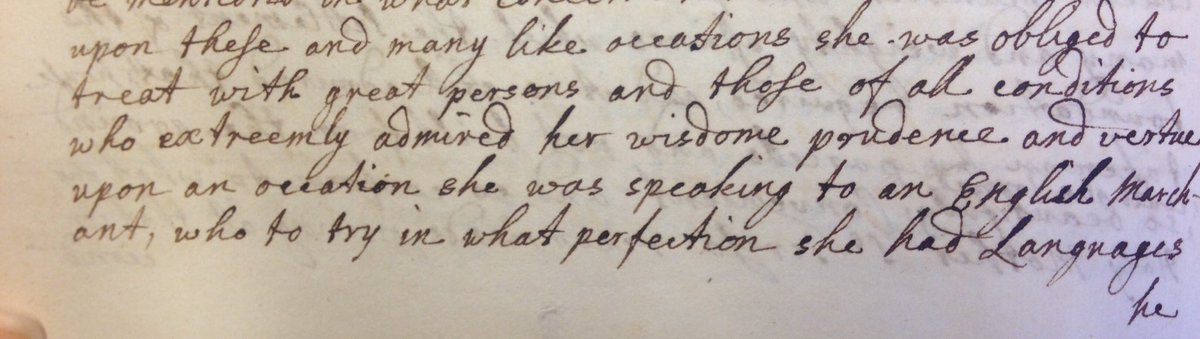 be mentioned in what concern
upon these and many like occations she was obliged to
treat with great persons and those of all conditions
who extreemly admired her wisdome prudence and vertue
upon an occation she was speaking to an English March-
ant, who to try in what perfection she had Languages
he